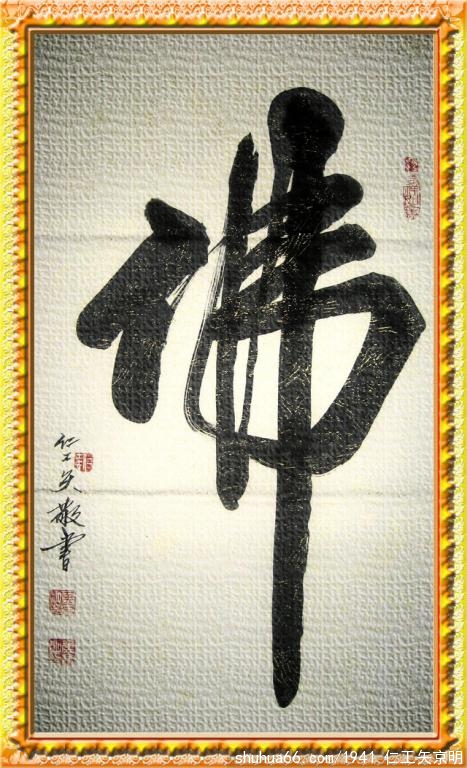 佛
仁工矢敬書
shuhua66. com/1941 仁工矢京明